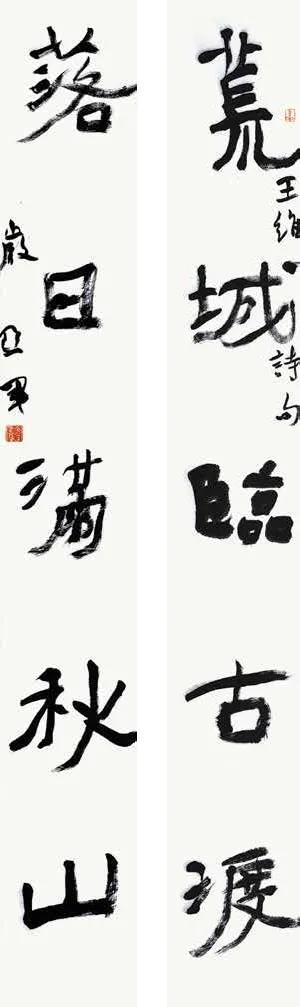 荒城臨古渡
王維詩句
落日滿秋山
嚴亞軍